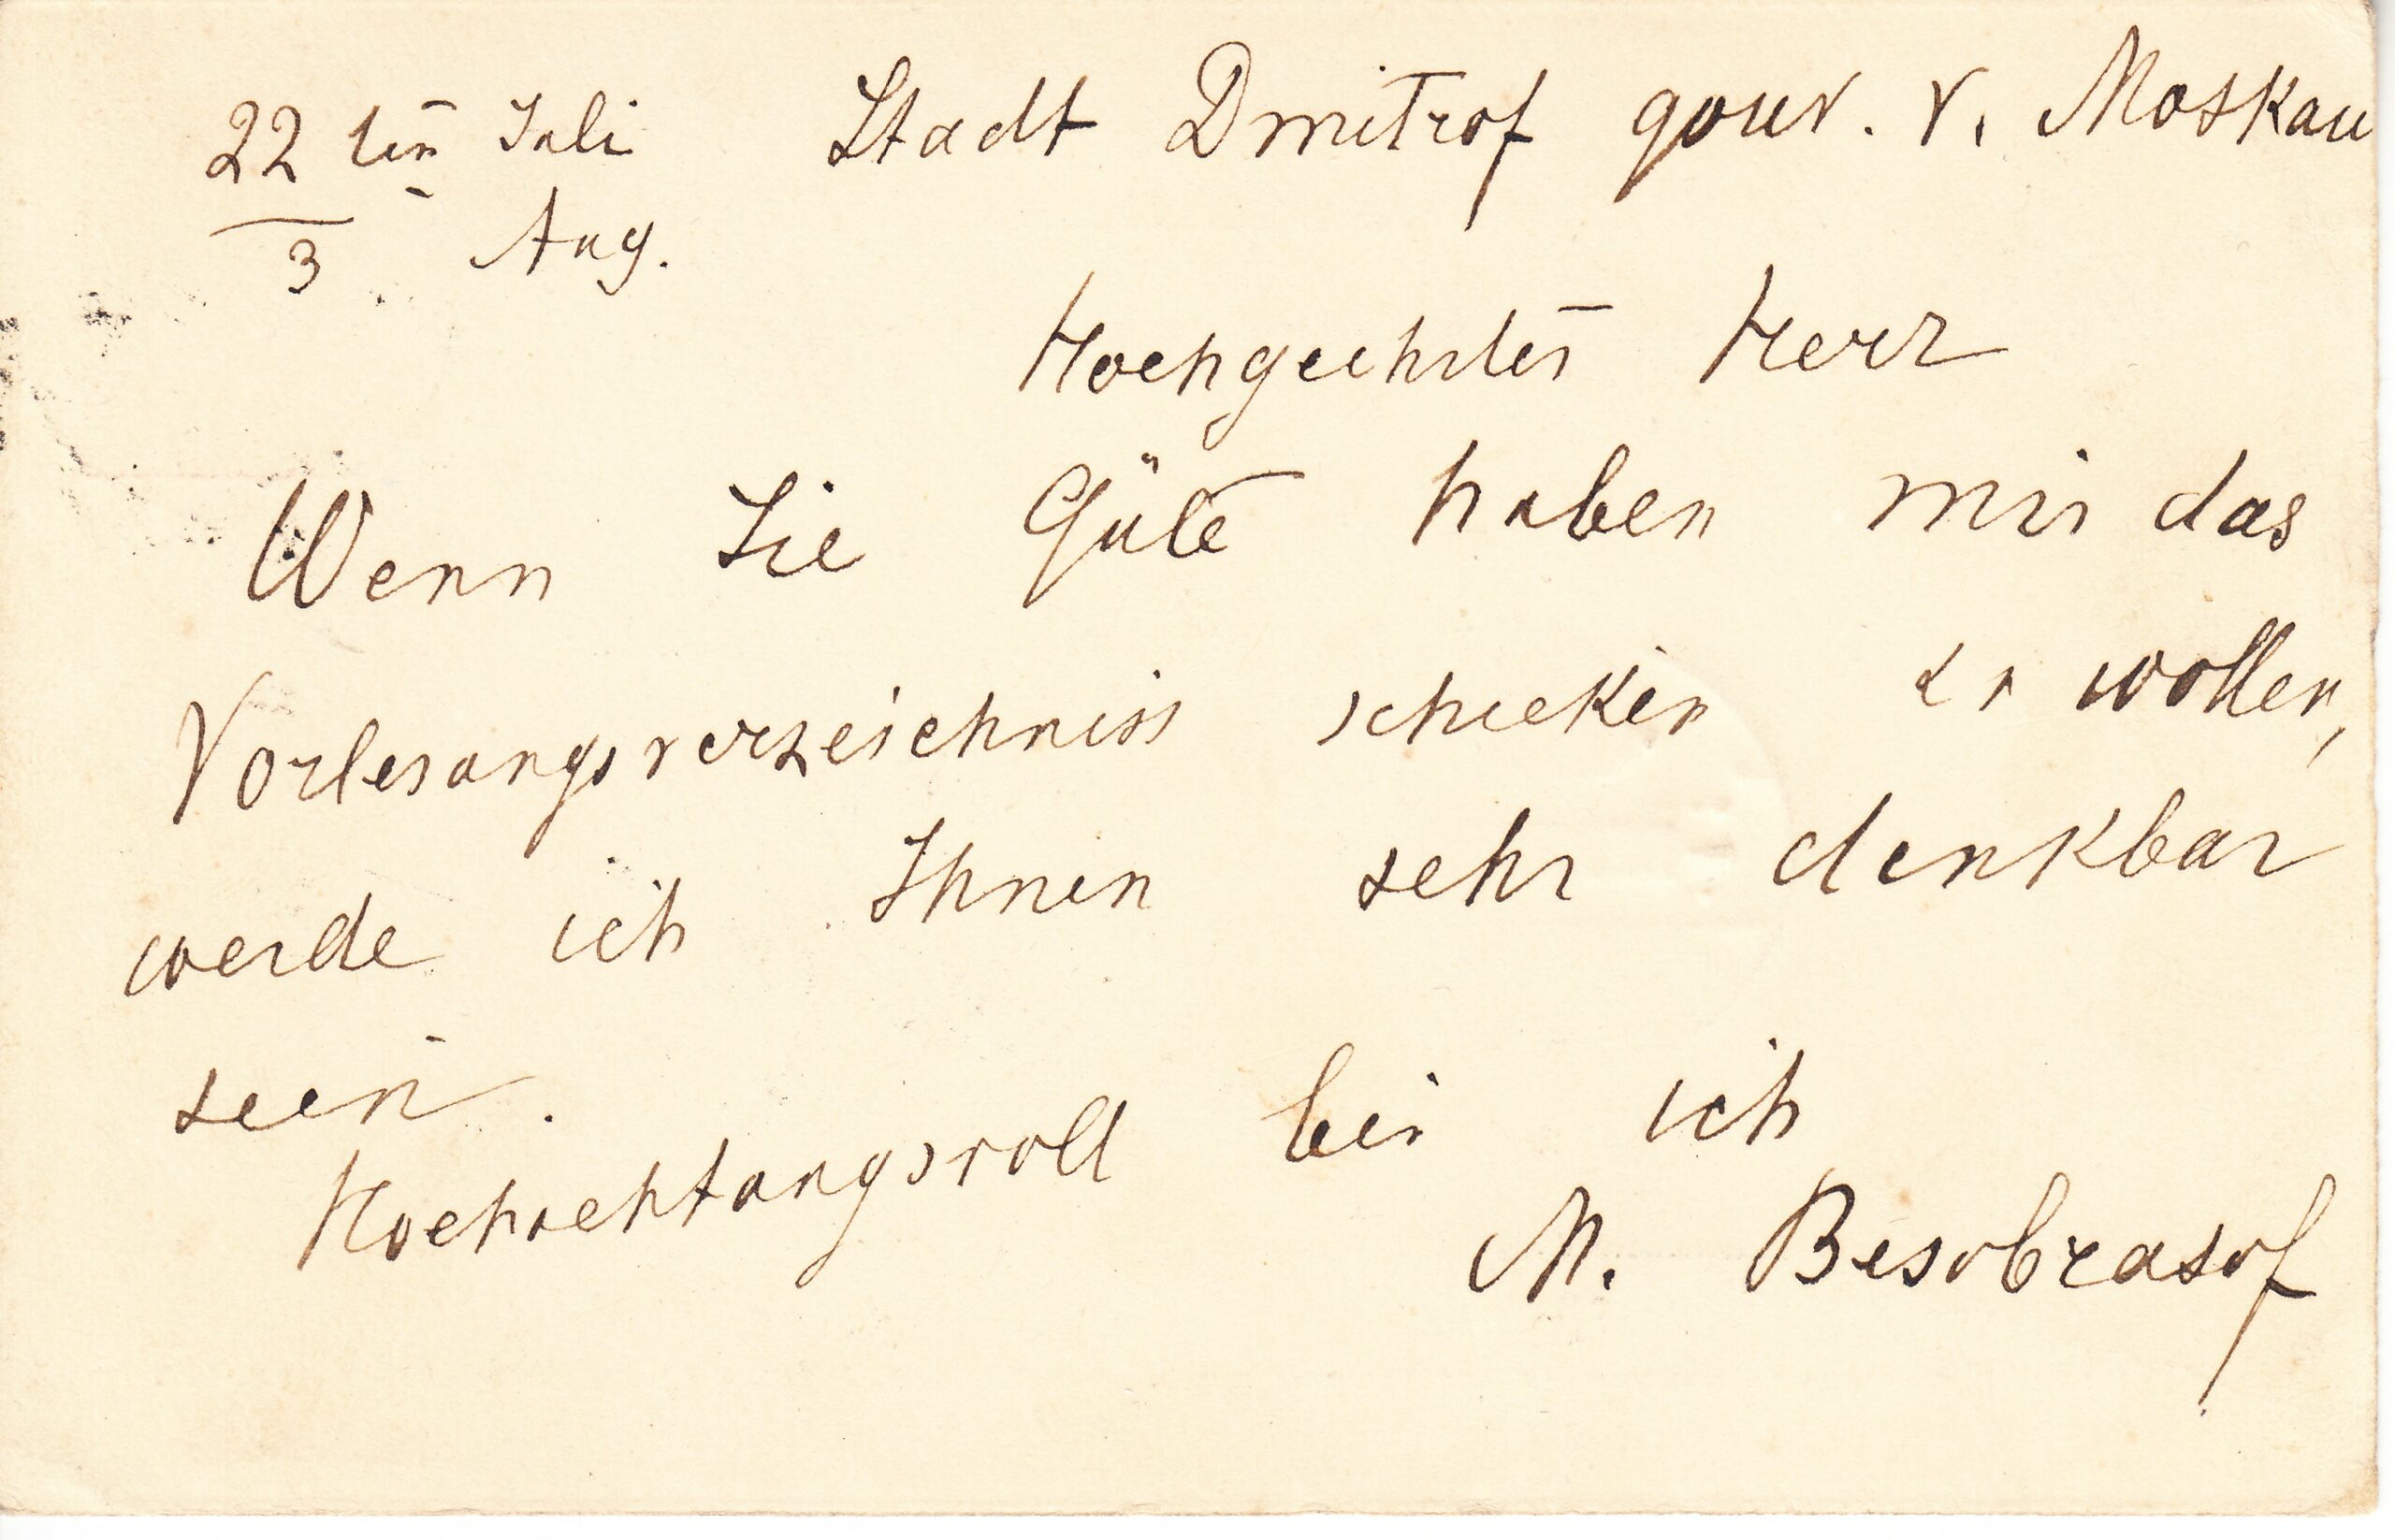 22 ten Juli Stadt Dmitrof gouv. v. Moskau
3 Aug.
Hochgeehrter Herr
Wenn Sie Güte haben mir das
Vorlesungsverzeichniss schicken zu wollen,
werde ich Ihnen sehr denkbar
sein.
Hochachtungsvoll bin ich
M. Besobrasof